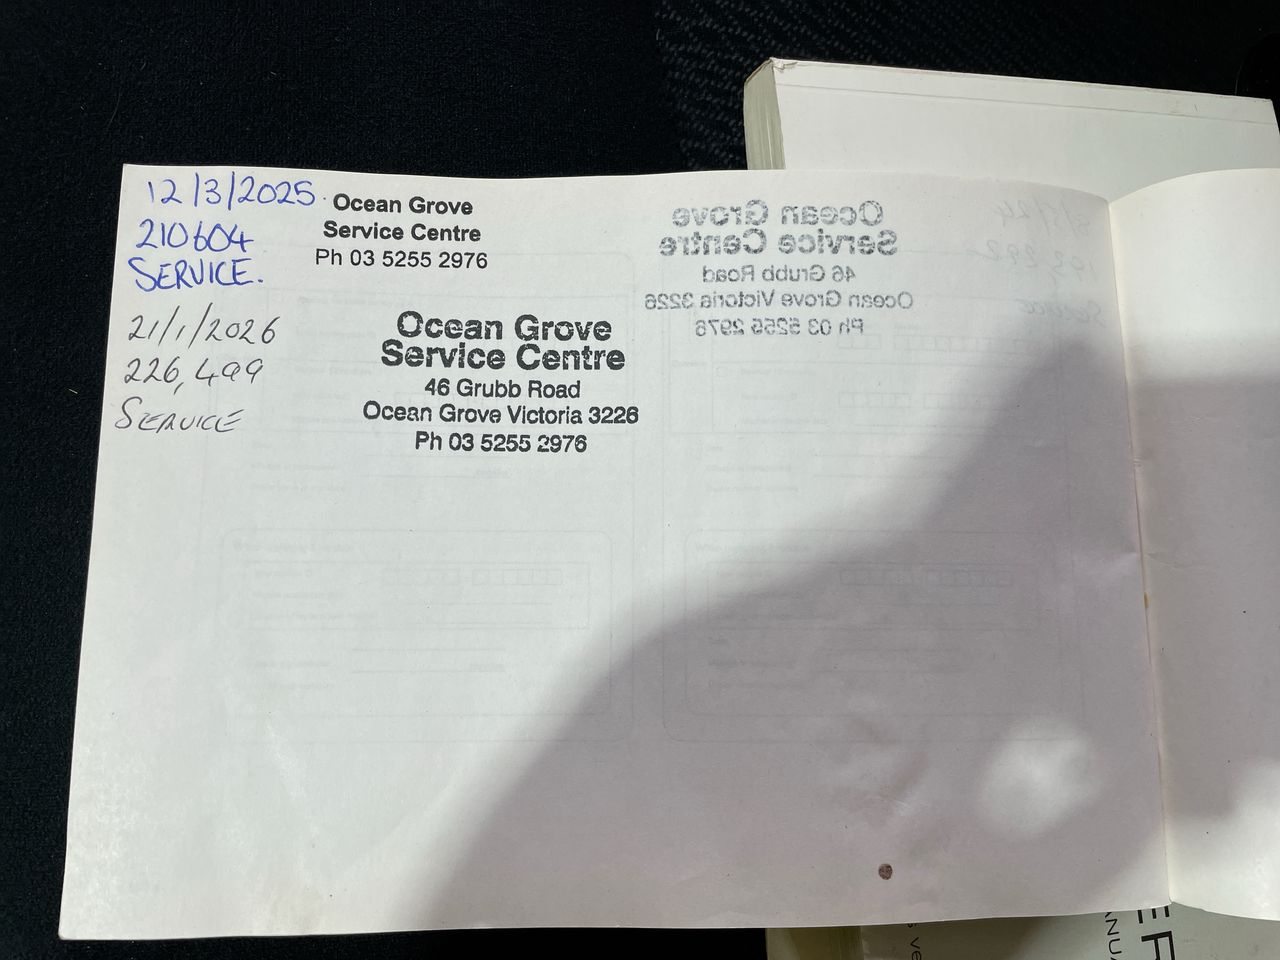 12/3/2025.
210604
SERVICE.
Ocean Grove
Service Centre
Ph 03 5255 2976
21/1/2026
226,499
SERVICE
Ocean Grove
Service Centre
46 Grubb Road
Ocean Grove Victoria 3226
Ph 03 5255 2976
Ocean Grove
Service Centre
46 Grubb Road
Ocean Grove Victoria 3226
Ph 03 5255 2976
Service